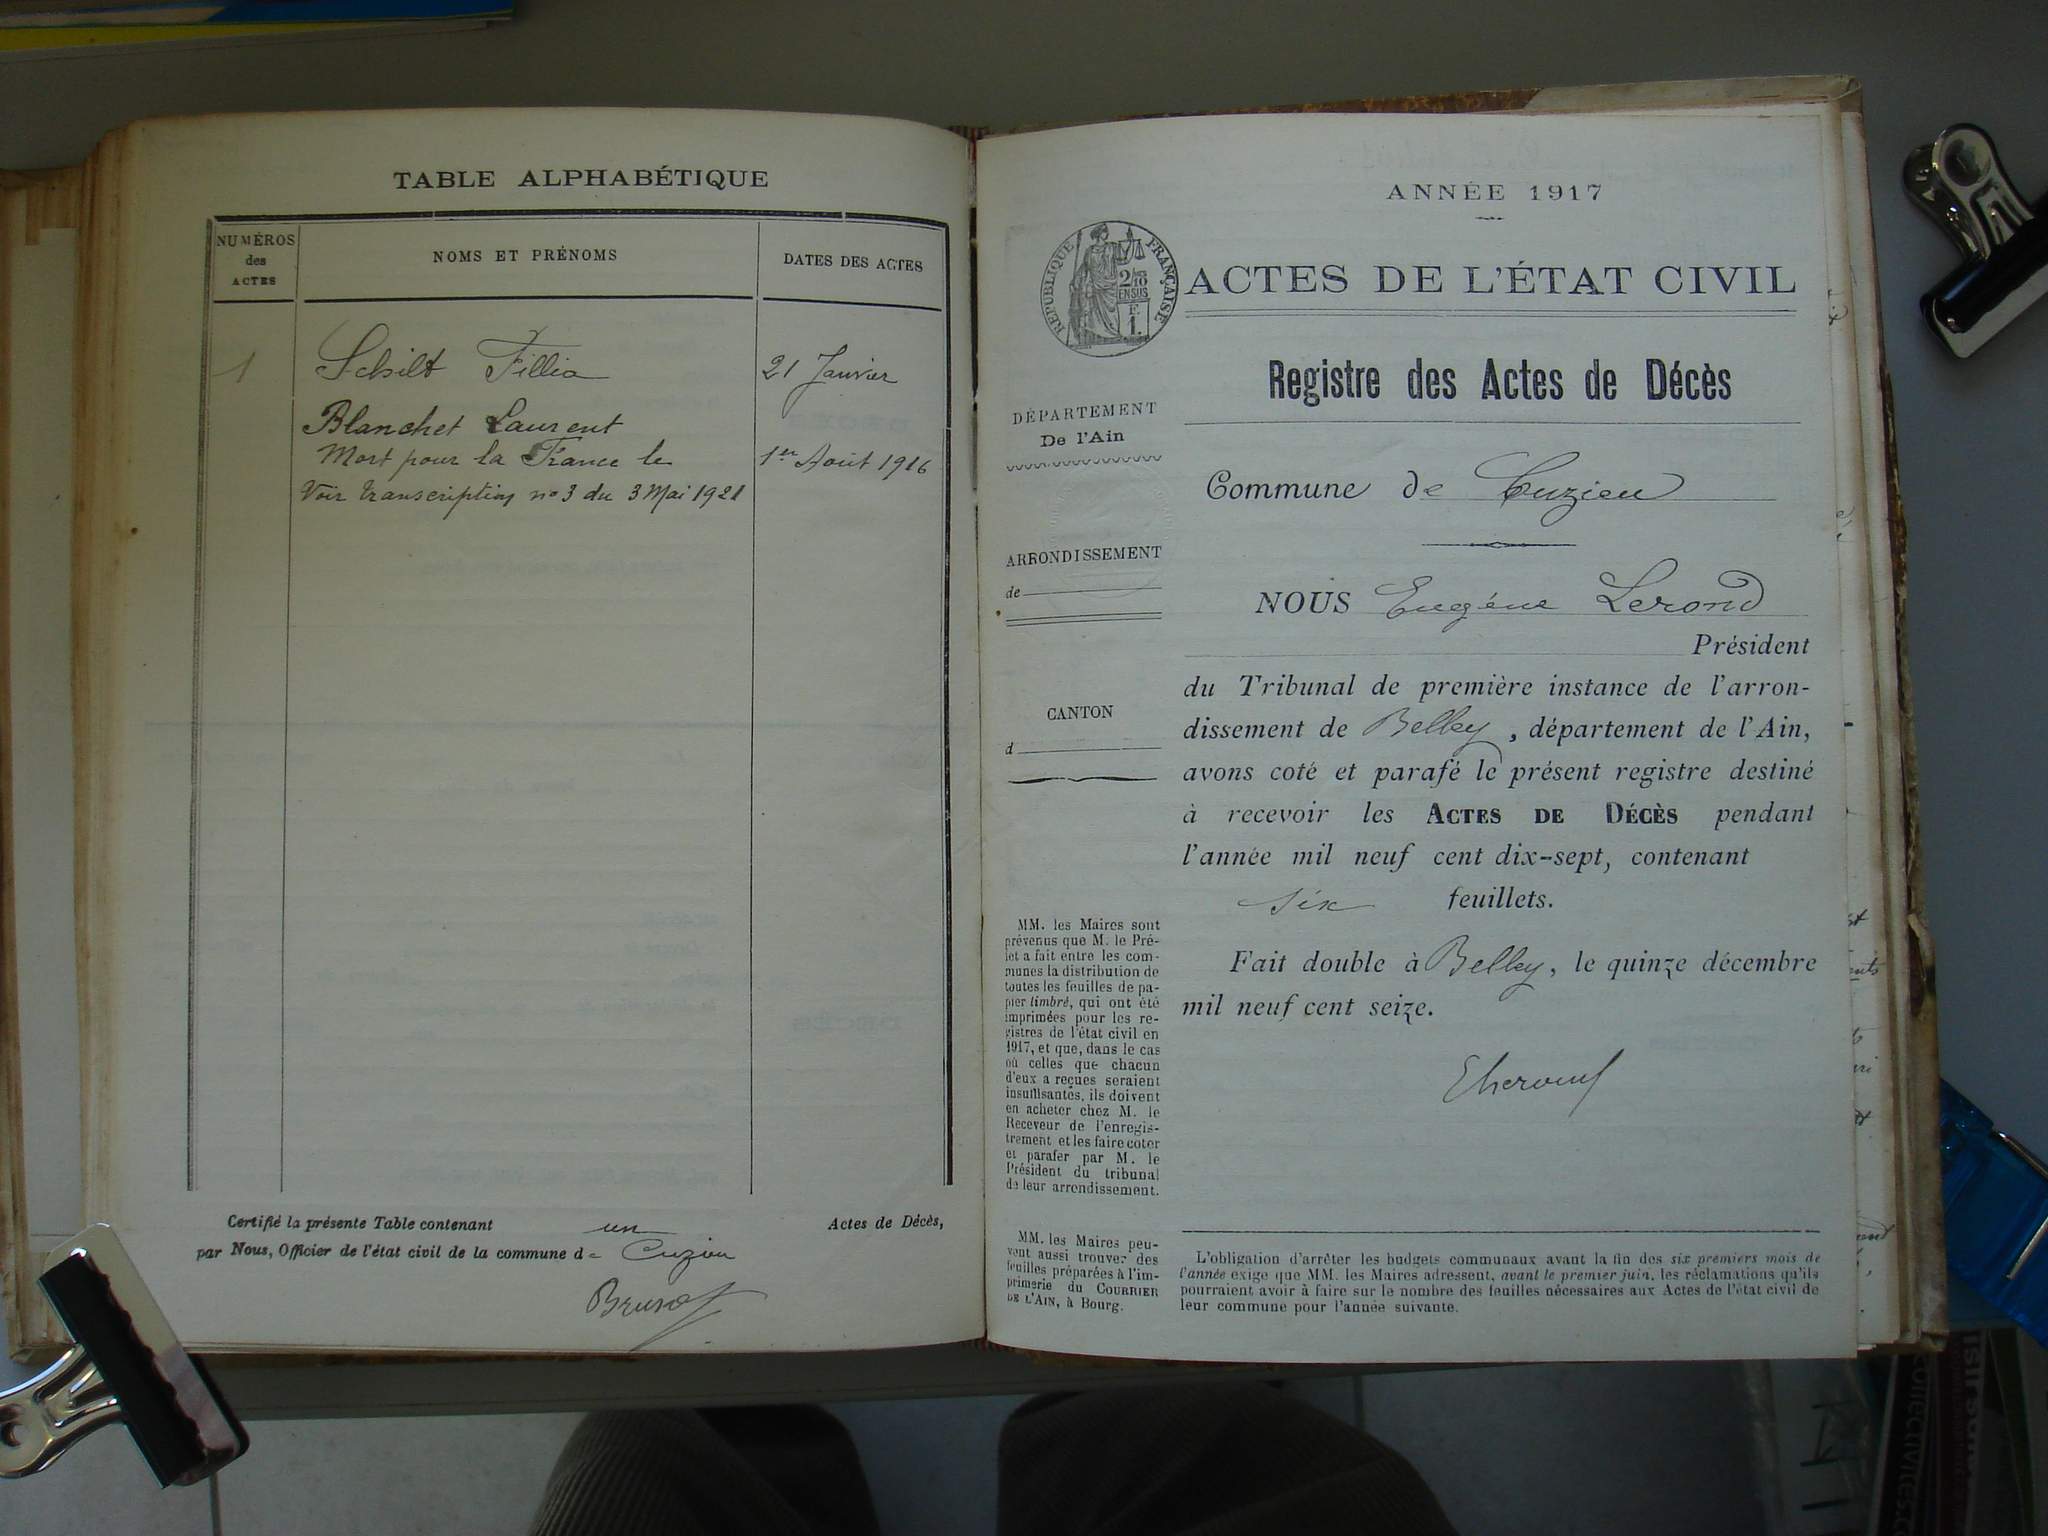 TABLE ALPHABÉTIQUE
NUMÉROS
des
ACTES
NOMS ET PRÉNOMS
DATES DES ACTES
1
Schilt Fillia
21 Janvier
Blanchet Laurent
Mort pour la France le
1er Août 1916
Voir transcription no 3 du 3 Mai 1921
Certifié la présente Table contenant un Actes de Décès,
par Nous, Officier de l'état civil de la commune de Cuzieu
ANNÉE 1917
RÉPUBLIQUE FRANÇAISE
2/10
EN SUS
F.
1.
ACTES DE L'ÉTAT CIVIL
Registre des Actes de Décès
DÉPARTEMENT
De l'Ain
Commune de Cuzieu
ARRONDISSEMENT
de
NOUS Eugène Lerond
Président
du Tribunal de première instance de l'arron-
dissement de Belley, département de l'Ain,
avons coté et parafé le présent registre destiné
à recevoir les ACTES DE DÉCÈS pendant
l'année mil neuf cent dix-sept, contenant
six feuillets.
Fait double à Belley, le quinze décembre
mil neuf cent seize.
CANTON
d
MM. les Maires sont
prévenus que M. le Pré-
fet a fait entre les com-
munes la distribution de
toutes les feuilles de pa-
pier timbré, qui ont été
imprimées pour les re-
gistres de l'état civil en
1917, et que, dans le cas
où celles que chacun
d'eux a reçues seraient
insuffisantes, ils doivent
en acheter chez M. le
Receveur de l'enregis-
trement et les faire coter
et parafer par M. le
Président du tribunal
de leur arrondissement.
MM. les Maires peu-
vent aussi trouver des
feuilles préparées à l'im-
primerie du COURRIER
DE L'AIN, à Bourg.
L'obligation d'arrêter les budgets communaux avant la fin des six premiers mois de
l'année exige que MM. les Maires adressent, avant le premier juin, les réclamations qu'ils
pourraient avoir à faire sur le nombre des feuilles nécessaires aux Actes de l'état civil de
leur commune pour l'année suivante.